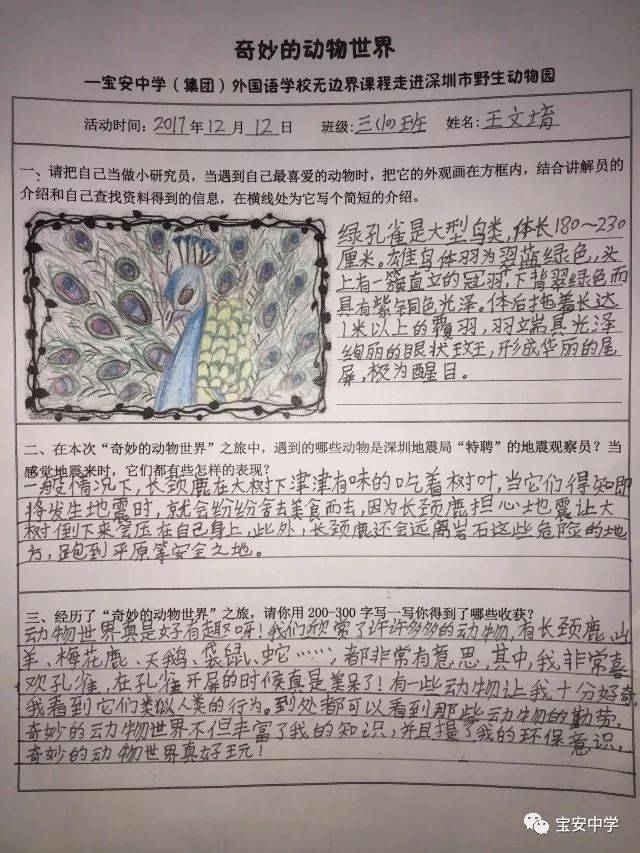 奇妙的动物世界
—宝安中学（集团）外国语学校无边界课程走进深圳市野生动物园
活动时间：2017年12月12日 班级：三(10)班 姓名：王文堉
一、请把自己当做小研究员，当遇到自己最喜爱的动物时，把它的外观画在方框内，结合讲解员的
介绍和自己查找资料得到的信息，在横线处为它写个简短的介绍。
绿孔雀是大型鸟类，体长180～230
厘米。雄鸟体羽为翠蓝绿色，头
上有一簇直立的冠羽，下背翠绿色而
具有紫铜色光泽。体后拖着长达
1米以上的覆羽，羽端具光泽
绚丽的眼状斑，形成华丽的尾
屏，极为醒目。
二、在本次“奇妙的动物世界”之旅中，遇到的哪些动物是深圳地震局“特聘”的地震观察员？当
感觉地震来时，它们都有些怎样的表现？
一般情况下，长颈鹿在大树下津津有味的吃着树叶，当它们得知即
将发生地震时，就会纷纷舍去美食而去，因为长颈鹿担心地震让大
树倒下来会压在自己身上，此外，长颈鹿还会远离岩石这些危险的地
方，跑到平原等安全之地。
三、经历了“奇妙的动物世界”之旅，请你用200-300字写一写你得到了哪些收获？
动物世界真是好有趣呀！我们欣赏了许许多多的动物，有长颈鹿、山
羊、梅花鹿、天鹅、袋鼠、蛇……，都非常有意思，其中，我非常喜
欢孔雀，在孔雀开屏的时候真是美呆了！有一些动物让我十分好奇，
我看到它们类似人类的行为。到处都可以看到那些动物的勤劳，
奇妙的动物世界不但丰富了我的知识，并且提了我的环保意识，
奇妙的动物世界真好玩！
宝安中学